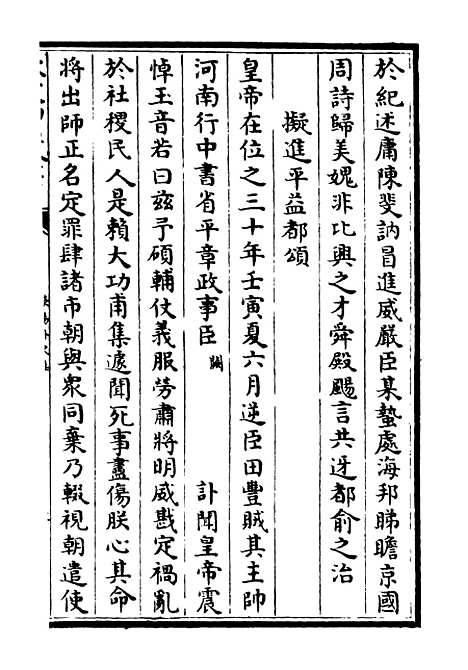 於紀述庸陳斐訥冒進威嚴臣某蟄處海邦睇瞻京國
周詩歸美媿非比興之才舜殿颺言共迓都俞之治
擬進平益都頌
皇帝在位之三十年壬寅夏六月逆臣田豐賊其主帥
河南行中書省平章政事臣 闕 訃聞皇帝震
悼玉音若曰兹予碩輔仗義服勞肅將明威戡定禍亂
於社稷民人是賴大功甫集遽聞死事盡傷朕心其命
將出師正名定罪肆諸市朝與衆同棄乃輟視朝遣使